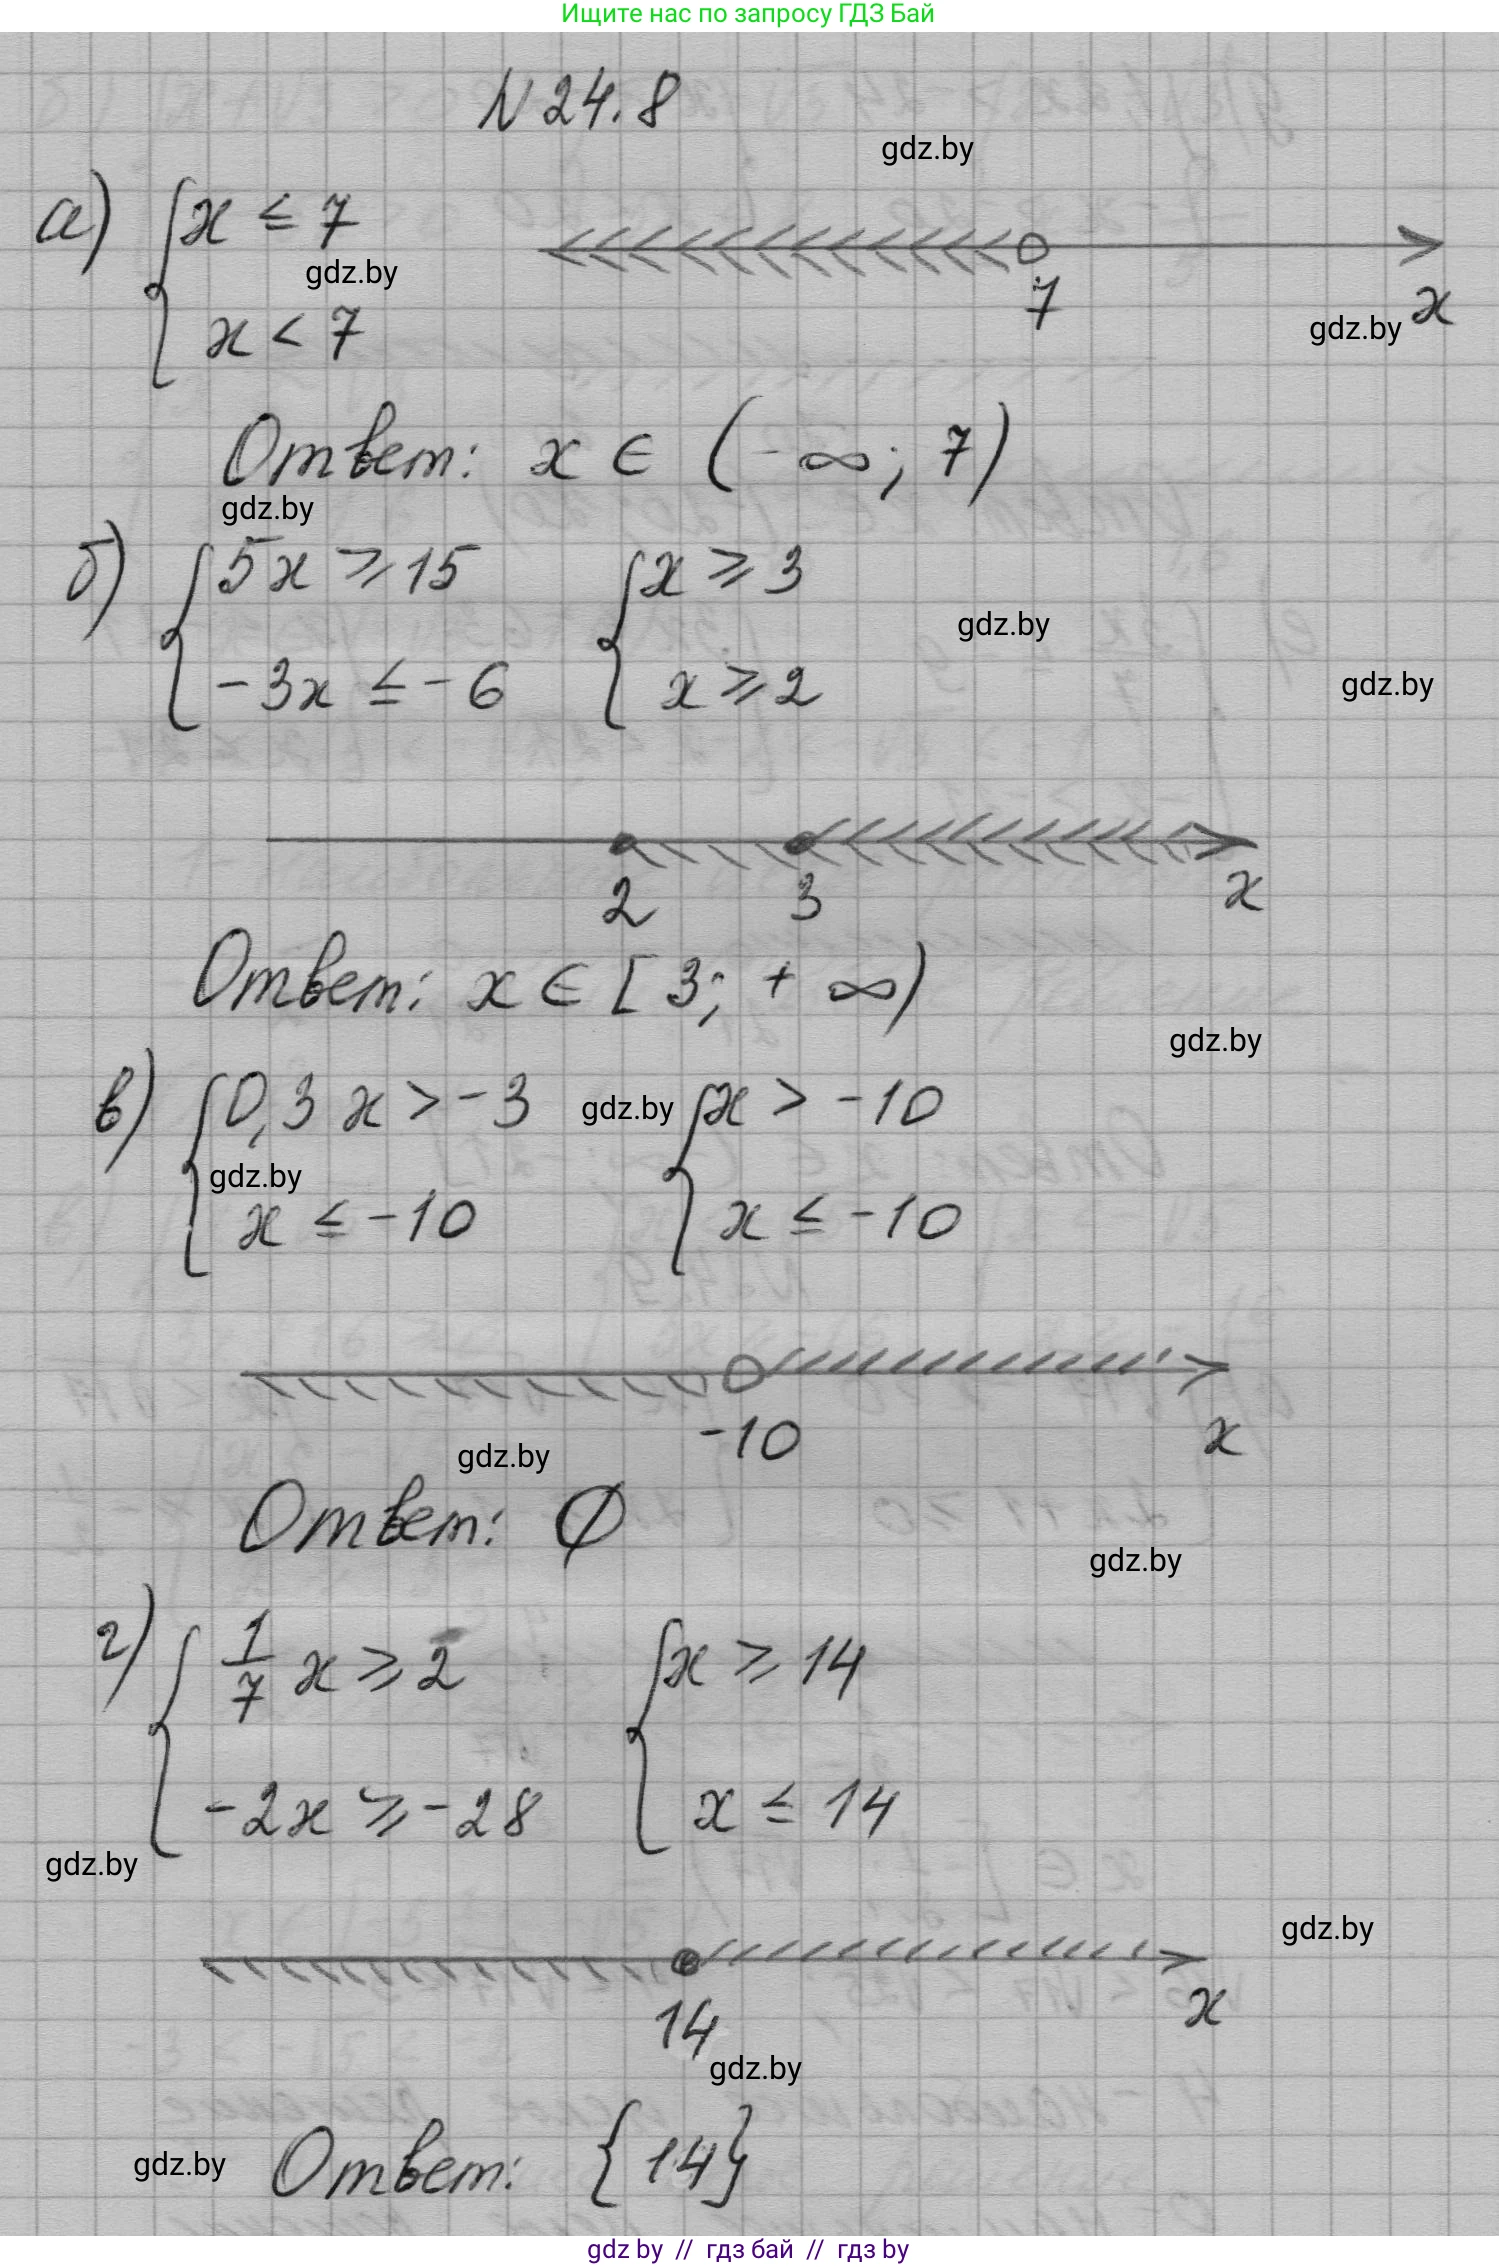 Ищите нас по запросу ГДЗ Бай
N 24.8
gdz.by
а) { x ≤ 7
gdz.by
x < 7
7
x
gdz.by
Ответ: x ∈ (-∞; 7)
gdz.by
б) { 5x ⩾ 15 { x ⩾ 3
gdz.by
-3x ≤ -6 x ⩾ 2
gdz.by
2 3 x
Ответ: x ∈ [3; +∞)
gdz.by
в) { 0,3x > -3 gdz.by { x > -10
gdz.by
x ≤ -10 x ≤ -10
-10 x
gdz.by
Ответ: ∅
gdz.by
г) { 1/7 x ⩾ 2 { x ⩾ 14
-2x ⩾ -28 x ≤ 14
gdz.by
gdz.by
14 x
gdz.by
gdz.by
Ответ: {14}
gdz by // гдз бай // гдз by